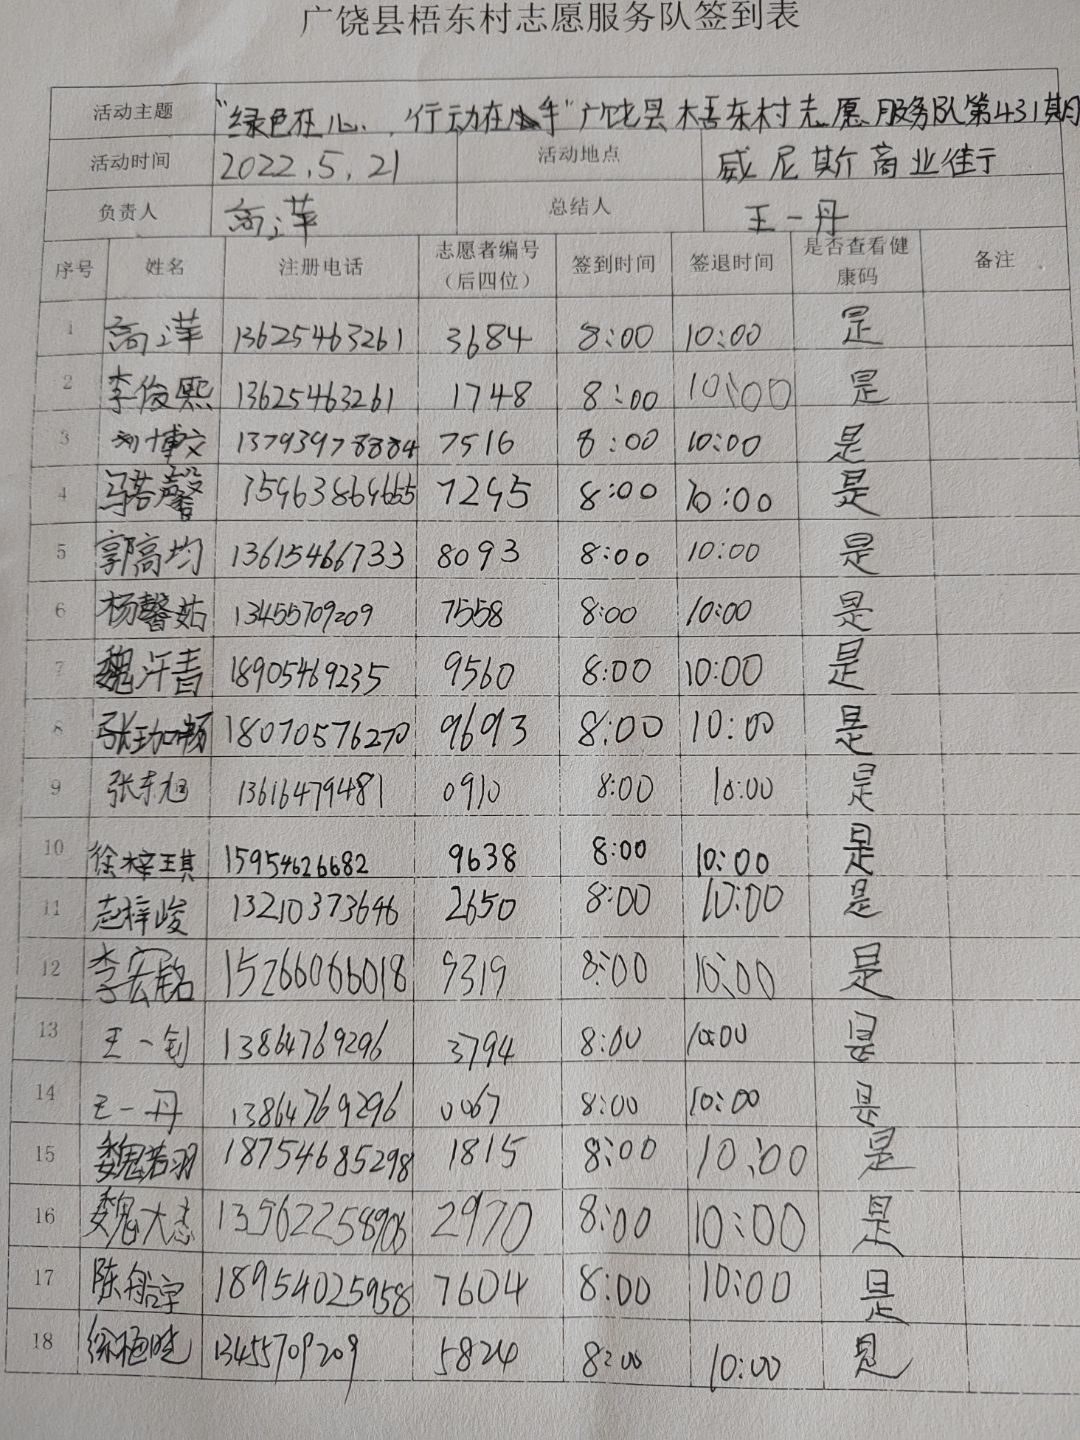 广饶县梧东村志愿服务队签到表
活动主题 "绿色在心,行动在手"广饶县梧东村志愿服务队第431期
活动时间 2022.5.21 活动地点 威尼斯商业街
负责人 高萍 总结人 王一丹
序号 姓名 注册电话 志愿者编号(后四位) 签到时间 签退时间 是否查看健康码 备注
1 高萍 13625463261 3684 8:00 10:00 是
2 李俊熙 13625463261 1748 8:00 10:00 是
3 刘博文 13793978884 7516 8:00 10:00 是
4 马若馨 15963864655 7295 8:00 10:00 是
5 郭高均 13615466733 8093 8:00 10:00 是
6 杨馨茹 13455709209 7558 8:00 10:00 是
7 魏汗青 18905469235 9560 8:00 10:00 是
8 张 18070576270 9693 8:00 10:00 是
9 张东旭 13616479481 0910 8:00 10:00 是
10 徐梓琪 15954626682 9638 8:00 10:00 是
11 梓峻 13210373646 2650 8:00 10:00 是
12 李宏铭 15266066018 9319 8:00 10:00 是
13 王一钊 13864769296 3794 8:00 10:00 是
14 王一丹 13864769296 0067 8:00 10:00 是
15 魏若羽 18754685298 1815 8:00 10:00 是
16 魏大志 13562258906 2970 8:00 10:00 是
17 陈 18954025958 7604 8:00 10:00 是
18 徐 13455709209 5824 8:00 10:00 是